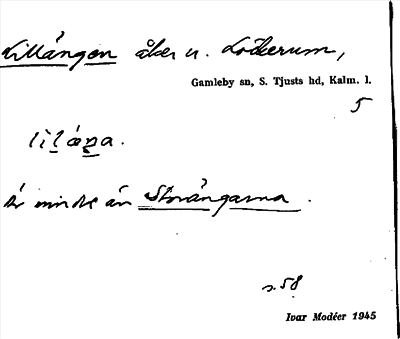 Lillängen åker u. Löckerum,
Gamleby sn, S. Tjusts hd, Kalm. l.
5
är mindre än Storängarna.
s. 58
Ivar Modéer 1945